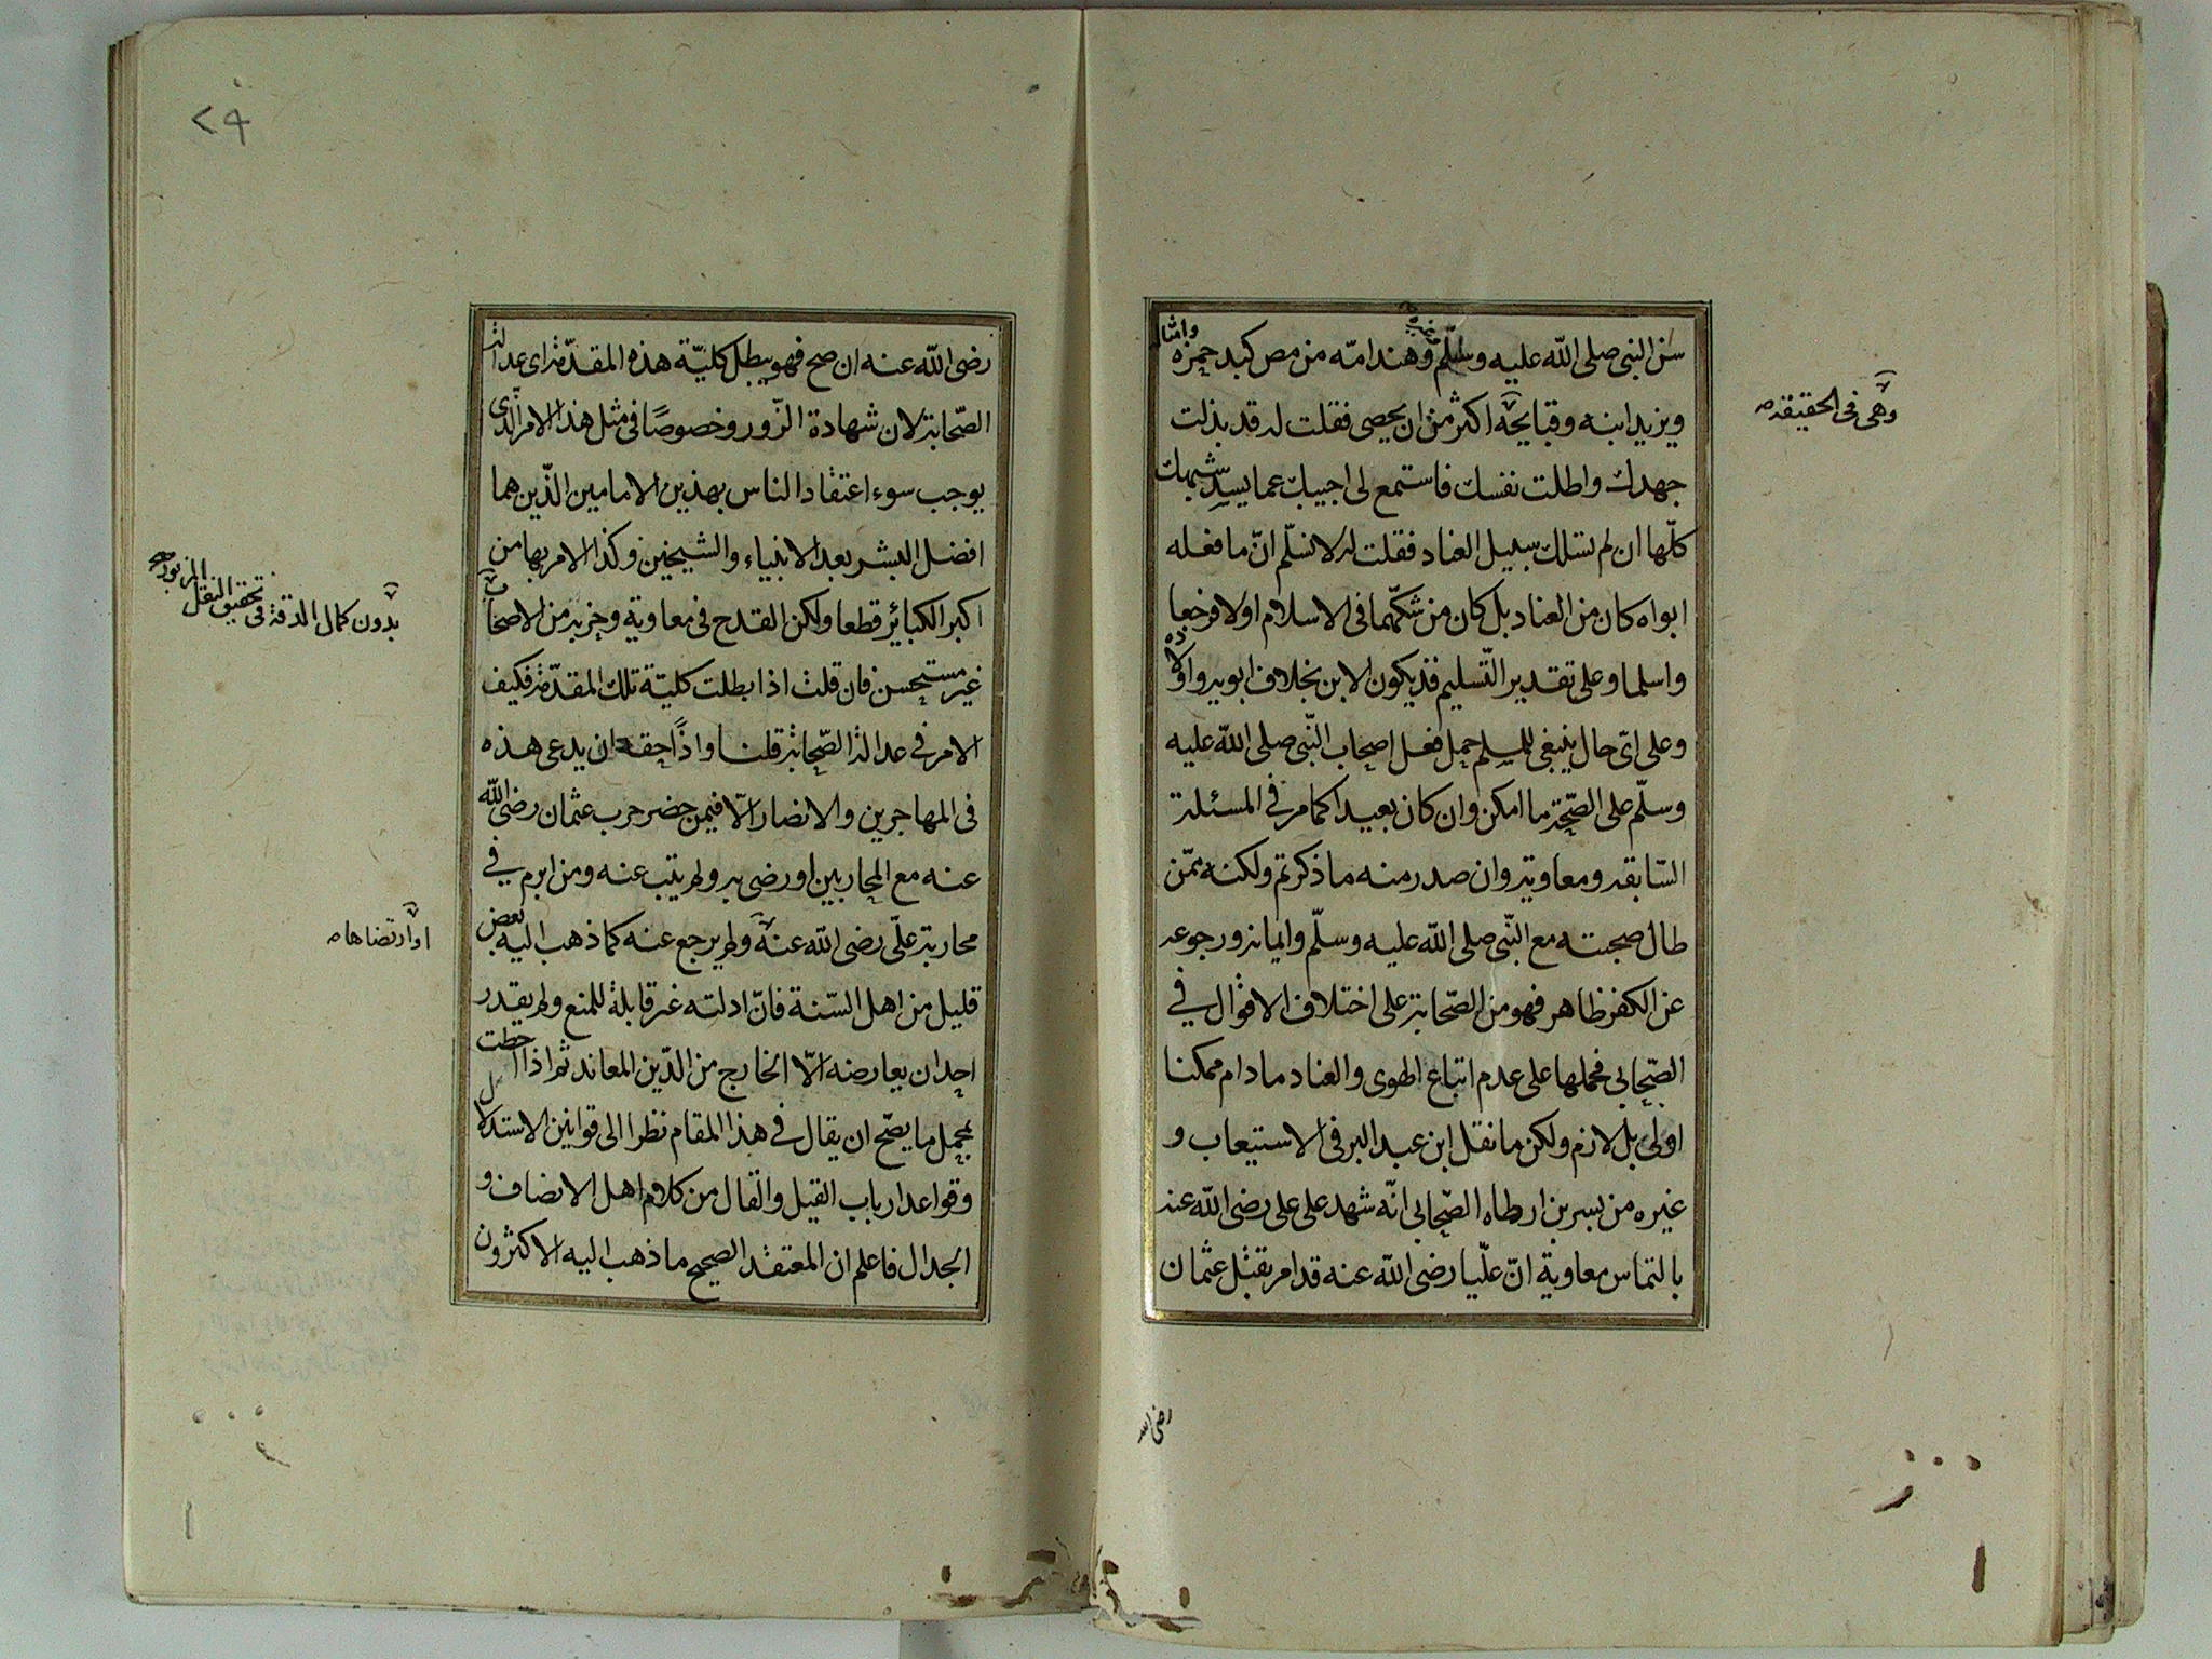 سن النبی صلی الله علیه وسلم وهند امه من مص کبد حمزه وامثاله
ویزید ابنه وقبایحه اکثر من ان یحصی فقلت له قد بذلت
جهدك واطلت نفسك فاستمع لی اجیبك عما یسد شبهك
کلها ان لم تسلك سبیل العناد فقلت له لا نسلم ان ما فعله
ابواه کان من العناد بل کان من شکهما فی الاسلام اولا فرجعا
واسلما وعلی تقدیر التسلیم فقد یکون الابن بخلاف ابویه واولاده
وعلی ای حال ینبغی للمسلم حمل فعل اصحاب النبی صلی الله علیه
وسلم علی الصحة ما امکن وان کان بعیدا کما مر فی المسئلة
السابقه ومعاویة وان صدر منه ما ذکرتم ولکنه ممن
طال صحبته مع النبی صلی الله علیه وسلم وایمانه ورجوعه
عن الکفر ظاهر فهو من الصحابة علی اختلاف الاقوال فی
الصحابی فحملها علی عدم اتباع الهوی والعناد مادام ممکنا
اولی بل لازم ولکن ما نقل ابن عبد البر فی الاستیعاب و
غیره من بسر بن ارطاه الصحابی انه شهد علی علی رضی الله عنه
بالتماس معاویة ان علیا رضی الله عنه قد امر بقتل عثمان
وهی فی الحقیقه
رضی الله
۲۹
رضی الله عنه ان صح فهو یبطل کلیة هذه المقدمة ای عدالة
الصحابة لان شهادة الزور وخصوصا فی مثل هذا الامر الذی
یوجب سوء اعتقاد الناس بهذین الامامین الذین هما
افضل البشر بعد الانبیاء والشیخین وکذا الامر بها من
اکبر الکبائر قطعا ولکن القدح فی معاویة وحزبه من الاصحاب
غیر مستحسن فان قلت اذا بطلت کلیة تلك المقدمة فکیف
الامر فی عدالة الصحابة قلنا واذا حقه ان یدعی هذه
فی المهاجرین والانصار الا فیمن حضر حرب عثمان رضی الله
عنه مع المحاربین او رضی به ولم یتب عنه ومن ابرم فی
محاربة علی رضی الله عنه ولم یرجع عنه کما ذهب الیه بعض
قلیل من اهل السنة فان ادلته غیر قابلة للمنع ولم یقدر
احد ان یعارضه الا الخارج من الدین المعاند ثم اذا احطت
بمجمل ما یصح ان یقال فی هذا المقام نظرا الی قوانین الاستدلال
وقواعد ارباب القیل والقال من کلام اهل الانصاف و
الجدال فاعلم ان المعتقد الصحیح ما ذهب الیه الاکثرون
بدون کمال الدقة فی تحقیق النقل المزبور
او ارتضاها